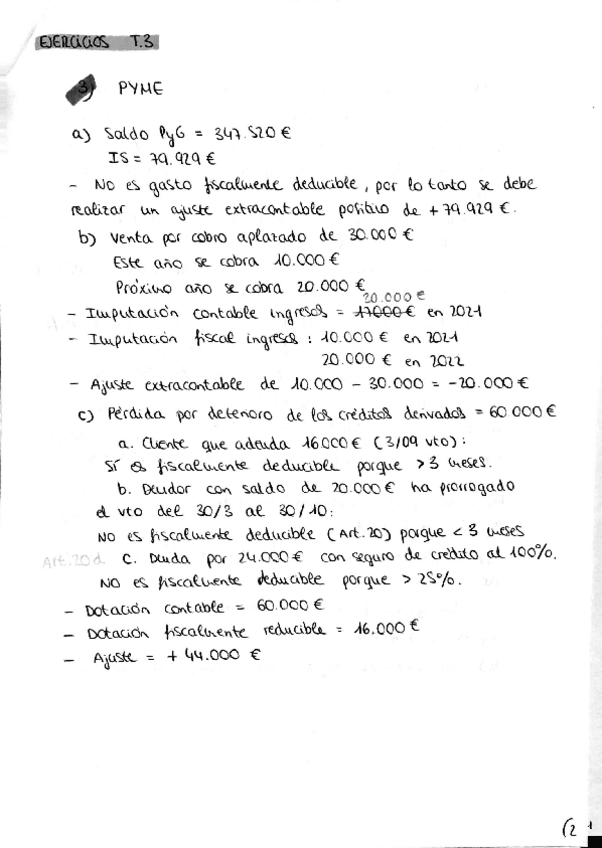 EJERCICIOS T.3
3) PYME
a) Saldo PyG = 347.520 €
IS = 79.929 €
- No es gasto fiscalmente deducible, por lo tanto se debe
realizar un ajuste extracontable positivo de + 79.929 €.
b) Venta por cobro aplazado de 30.000 €
Este año se cobra 10.000 €
Próximo año se cobra 20.000 €
20.000 €
- Imputación contable ingresos = 17000 € en 2021
- Imputación fiscal ingresos : 10.000 € en 2021
20.000 € en 2022
- Ajuste extracontable de 10.000 - 30.000 = -20.000 €
c) Pérdida por deterioro de los créditos derivados = 60 000 €
a. Cliente que adeuda 16000 € (3/09 vto) :
SÍ es fiscalmente deducible porque > 3 meses.
b. Deudor con saldo de 20.000 € ha prorrogado
el vto del 30/3 al 30/10:
NO es fiscalmente deducible (Art.20) porque < 3 meses
Art.20d c. Deuda por 24.000 € con seguro de crédito al 100%.
NO es fiscalmente deducible porque > 25%.
- Dotación contable = 60.000 €
- Dotación fiscalmente reducible = 16.000 €
- Ajuste = + 44.000 €